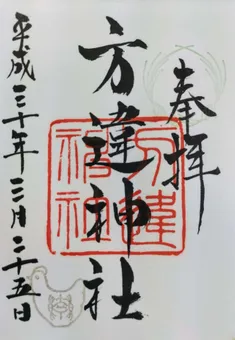 奉拝
方違神社
平成三十年三月二十五日
方違神社